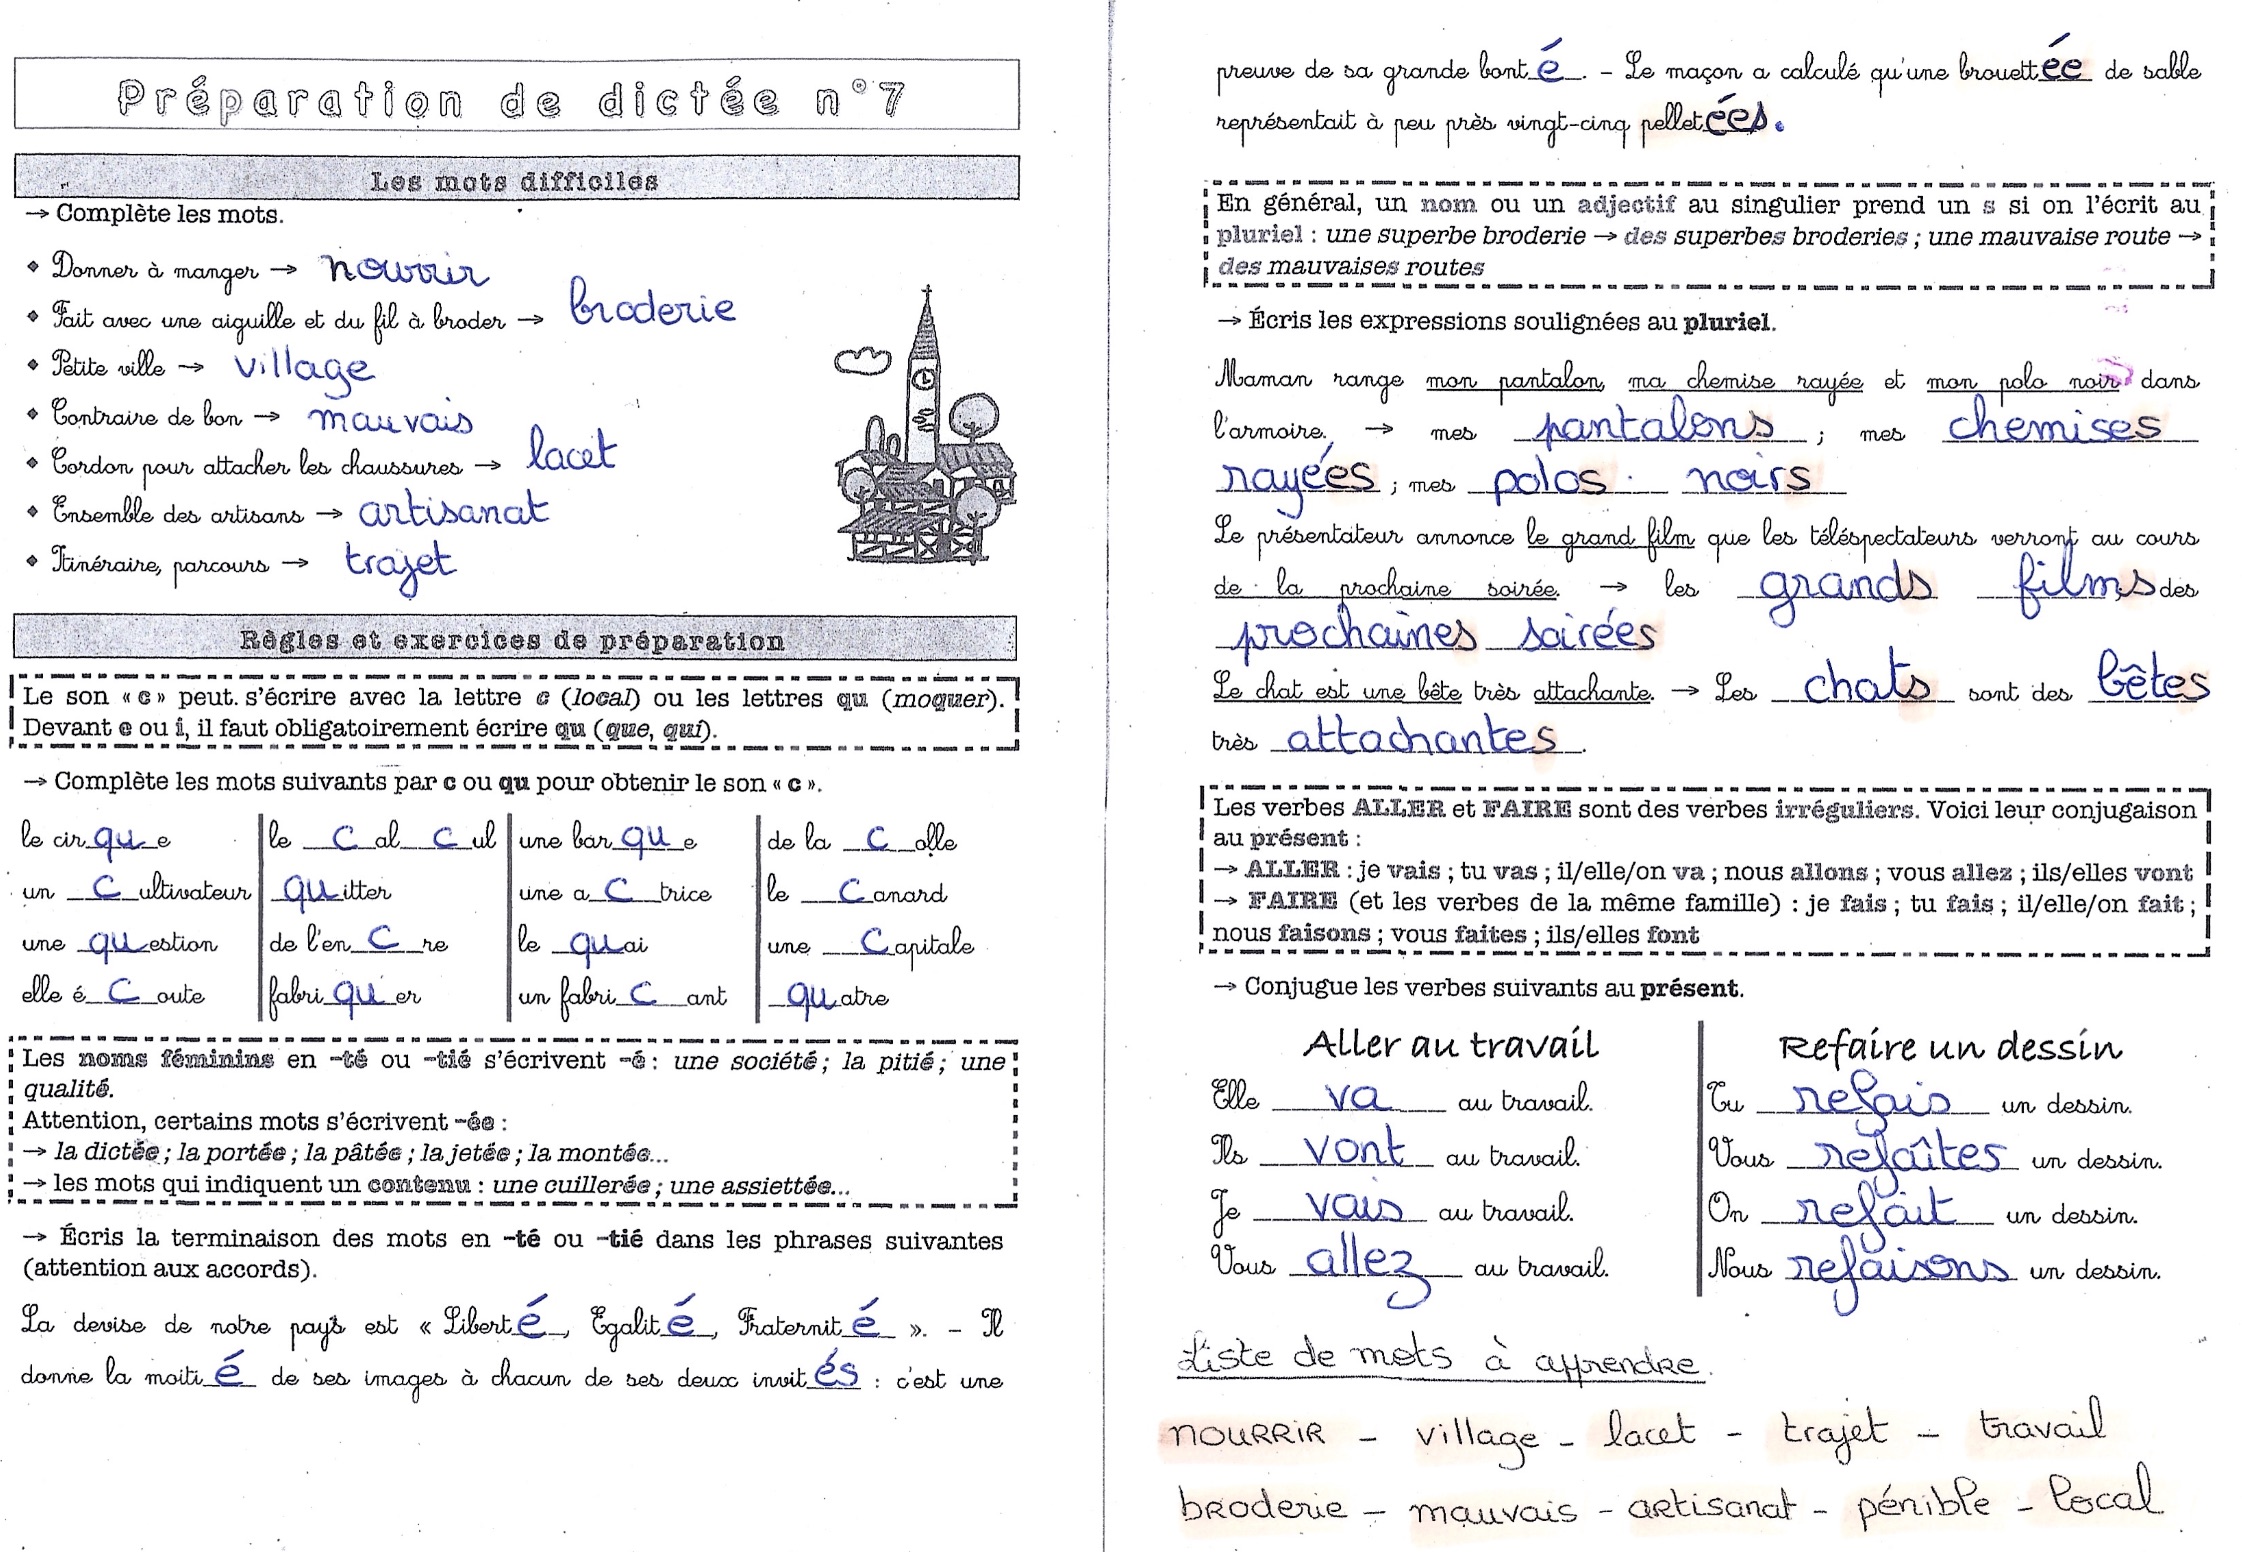 Préparation de dictée n°7
Les mots difficiles
→ Complète les mots.
❖ Donner à manger → nourrir
❖ Fait avec une aiguille et du fil à broder → broderie
❖ Petite ville → village
❖ Contraire de bon → mauvais
❖ Cordon pour attacher les chaussures → lacet
❖ Ensemble des artisans → artisanat
❖ Itinéraire, parcours → trajet
Règles et exercices de préparation
Le son « c » peut s'écrire avec la lettre c (local) ou les lettres qu (moquer).
Devant e ou i, il faut obligatoirement écrire qu (que, qui).
→ Complète les mots suivants par c ou qu pour obtenir le son « c ».
le cirque le calcul une barque de la colle
un cultivateur quitter une actrice le canard
une question de l'encre le quai une capitale
elle écoute fabriquer un fabricant quatre
Les noms féminins en -té ou -tié s'écrivent -é : une société ; la pitié ; une
qualité.
Attention, certains mots s'écrivent -ée :
→ la dictée ; la portée ; la pâtée ; la jetée ; la montée...
→ les mots qui indiquent un contenu : une cuillerée ; une assiettée...
→ Écris la terminaison des mots en -té ou -tié dans les phrases suivantes
(attention aux accords).
La devise de notre pays est « Liberté, Egalité, Fraternité ». - Il
donne la moitié de ses images à chacun de ses deux invités : c'est une
preuve de sa grande bonté. - Le maçon a calculé qu'une brouettée de sable
représentait à peu près vingt-cinq pelletées.
En général, un nom ou un adjectif au singulier prend un s si on l'écrit au
pluriel : une superbe broderie → des superbes broderies ; une mauvaise route →
des mauvaises routes
→ Écris les expressions soulignées au pluriel.
Maman range mon pantalon, ma chemise rayée et mon polo noir dans
l'armoire. → mes pantalons ; mes chemises
rayées ; mes polos noirs
Le présentateur annonce le grand film que les téléspectateurs verront au cours
de la prochaine soirée. → les grands films des
prochaines soirées
Le chat est une bête très attachante. → Les chats sont des bêtes
très attachantes.
Les verbes ALLER et FAIRE sont des verbes irréguliers. Voici leur conjugaison
au présent :
→ ALLER : je vais ; tu vas ; il/elle/on va ; nous allons ; vous allez ; ils/elles vont
→ FAIRE (et les verbes de la même famille) : je fais ; tu fais ; il/elle/on fait ;
nous faisons ; vous faites ; ils/elles font
→ Conjugue les verbes suivants au présent.
Aller au travail Refaire un dessin
Elle va au travail. Tu refais un dessin.
Ils vont au travail. Vous refaîtes un dessin.
Je vais au travail. On refait un dessin.
Vous allez au travail. Nous refaisons un dessin.
Liste de mots à apprendre.
nourrir - village - lacet - trajet - travail
broderie - mauvais - artisanat - pénible - local